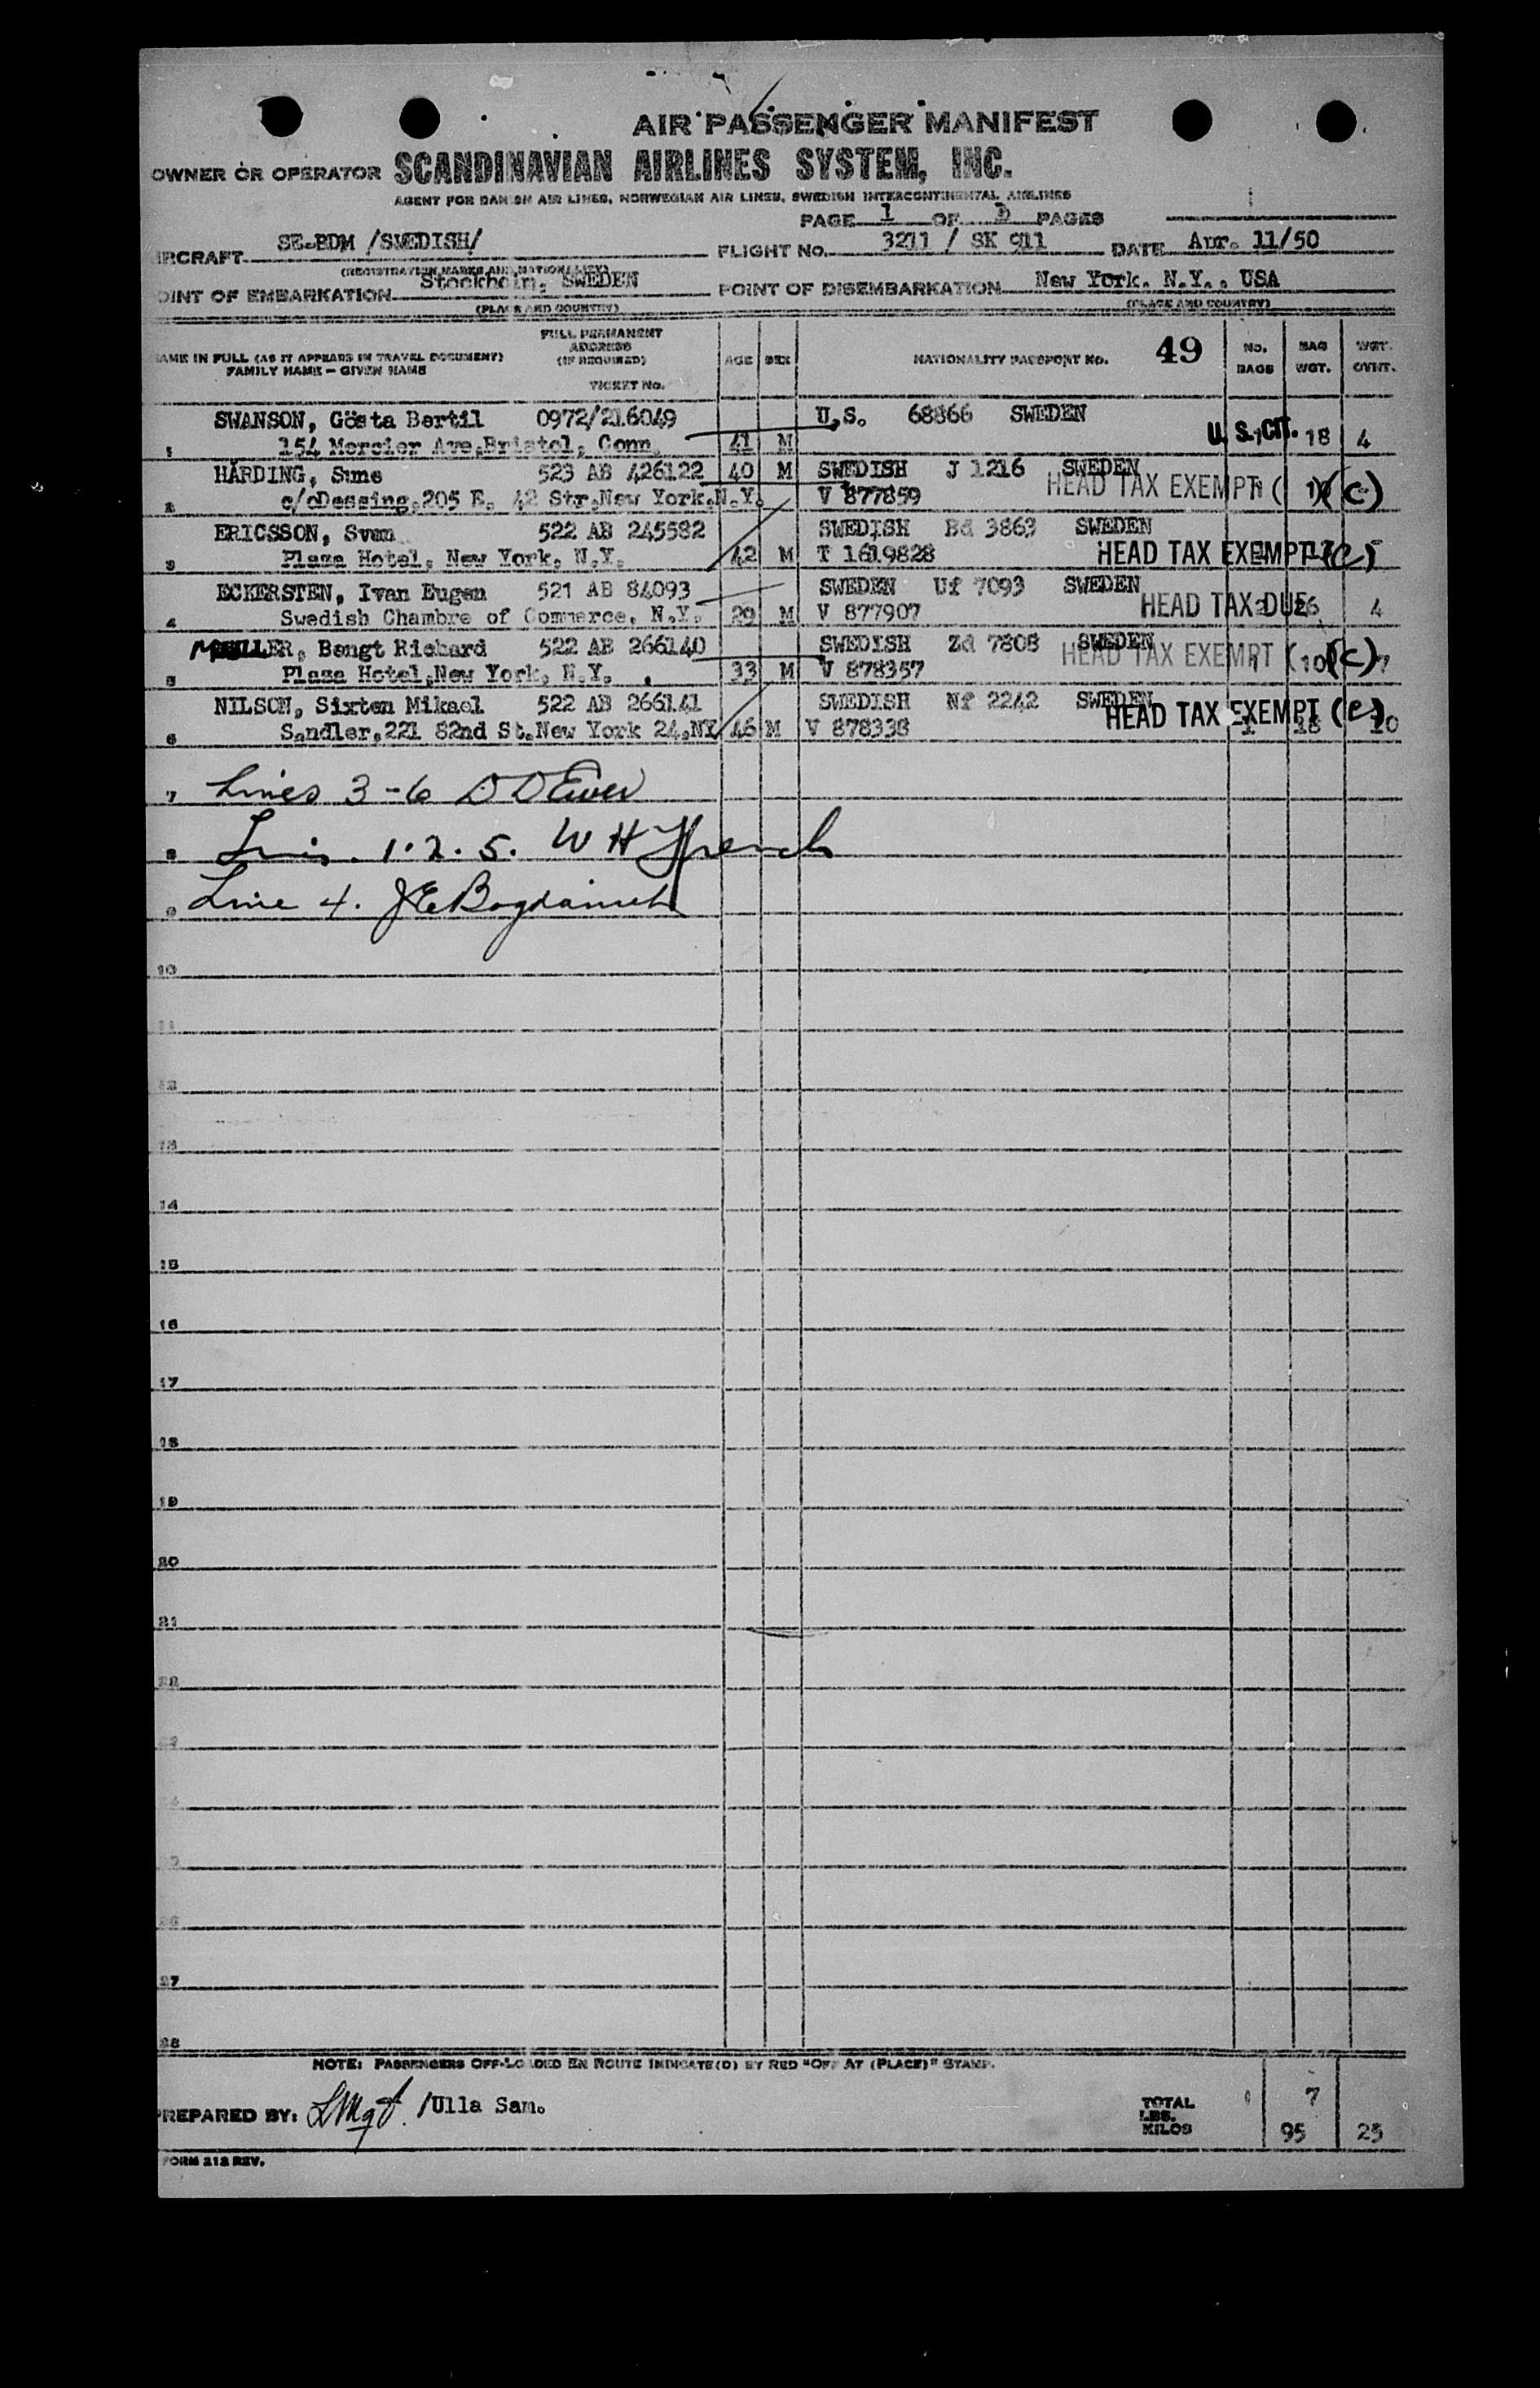 AIR PASSENGER MANIFEST
OWNER OR OPERATOR SCANDINAVIAN AIRLINES SYSTEM, INC.
AGENT FOR DANISH AIR LINES, NORWEGIAN AIR LINES, SWEDISH INTERCONTINENTAL AIRLINES
PAGE 1 OF PAGES
IRCRAFT SE-BDM /SWEDISH/ FLIGHT No. 3211 / SK 911 DATE Apr. 11/50
(REGISTRATION MARKS AND NATIONALITY)
OINT OF EMBARKATION Stockholm, SWEDEN POINT OF DISEMBARKATION New York, N.Y., USA
(PLACE AND COUNTRY) (PLACE AND COUNTRY)
AME IN FULL (AS IT APPEARS IN TRAVEL DOCUMENT) FAMILY NAME — GIVEN NAME
FULL PERMANENT ADDRESS (IF REQUIRED) TICKET No.
AGE SEX NATIONALITY PASSPORT No. 49 No. BAGS BAG WGT. WGT. OVWT.
SWANSON, Gösta Bertil 0972/216049 U.S. 68866 SWEDEN
1 154 Mercier Ave,Bristol, Conn. 41 M U.S. CIT. 1 18 4
HÅRDING, Sune 523 AB 426122 40 M SWEDISH J 1216 SWEDEN
2 c/oDessing,205 E. 42 Str,New York,N.Y. V 877859 HEAD TAX EXEMPT (C)
ERICSSON, Sven 522 AB 245582 SWEDISH Bd 3863 SWEDEN
3 Plaza Hotel, New York, N.Y. 42 M T 1619828 HEAD TAX EXEMPT (C)
ECKERSTEN, Ivan Eugen 521 AB 84093 SWEDEN Uf 7093 SWEDEN
4 Swedish Chambre of Commerce, N.Y. 29 M V 877907 HEAD TAX DUE 26 4
LLER, Bengt Richard 522 AB 266140 SWEDISH Zd 7808 SWEDEN
5 Plaza Hotel,New York, N.Y. 33 M V 878357 HEAD TAX EXEMPT 1 10 (C) 7
NILSON, Sixten Mikael 522 AB 266141 SWEDISH Nf 2242 SWEDEN
6 Sandler,221 82nd St.New York 24,NY 46 M V 878338 HEAD TAX EXEMPT (C) 1 18 10
7 Lines 3-6 D D Ewer
8 1.2.5. W H French
9 Line 4. J E
10
11
12
13
14
15
16
17
18
19
20
21
22
23
24
25
26
27
28
NOTE: PASSENGERS OFF-LOADED EN ROUTE INDICATE(D) BY RED "OFF AT (PLACE)" STAMP.
PREPARED BY: /Ulla Sam.
TOTAL 7
LBS.
KILOS 95 25
FORM 212 REV.